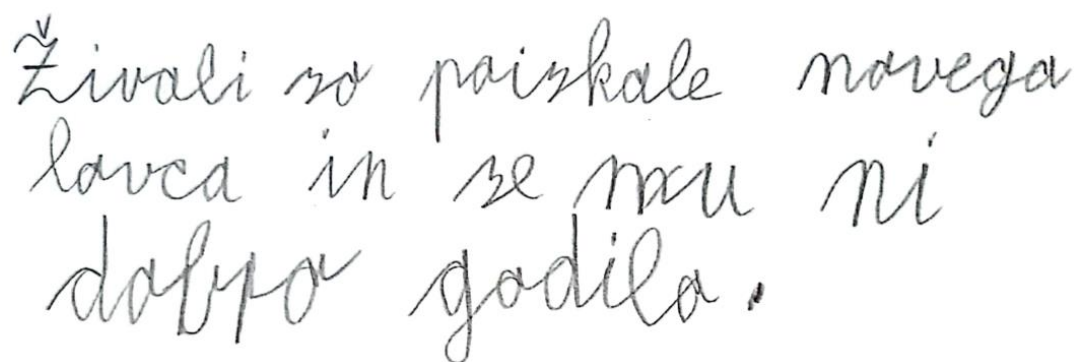 Živali so poiskale novega
lovca in se mu ni
dobro godilo.